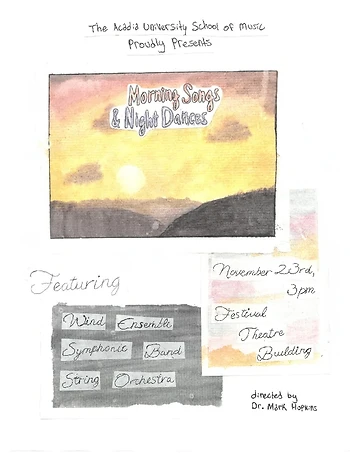 The Acadia University School of Music
Proudly Presents
Morning Songs
& Night Dances
Featuring
Wind Ensemble
Symphonic Band
String Orchestra
November 23rd,
3pm
Festival
Theatre
Building
directed by
Dr. Mark Hopkins